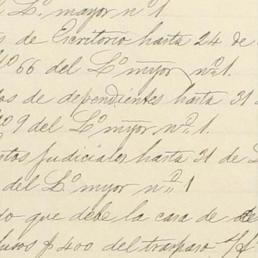 L.º mayor nº 1.
s de Escritorio hasta 24 de
nº 66 del L.º myor nº 1.
os de dependientes hasta 31
nº 9 del L.º myor nº 1.
tos judiciales hasta 31 de
del L.º myor nº 1
do que debe la casa de
$ 400 del traspaso